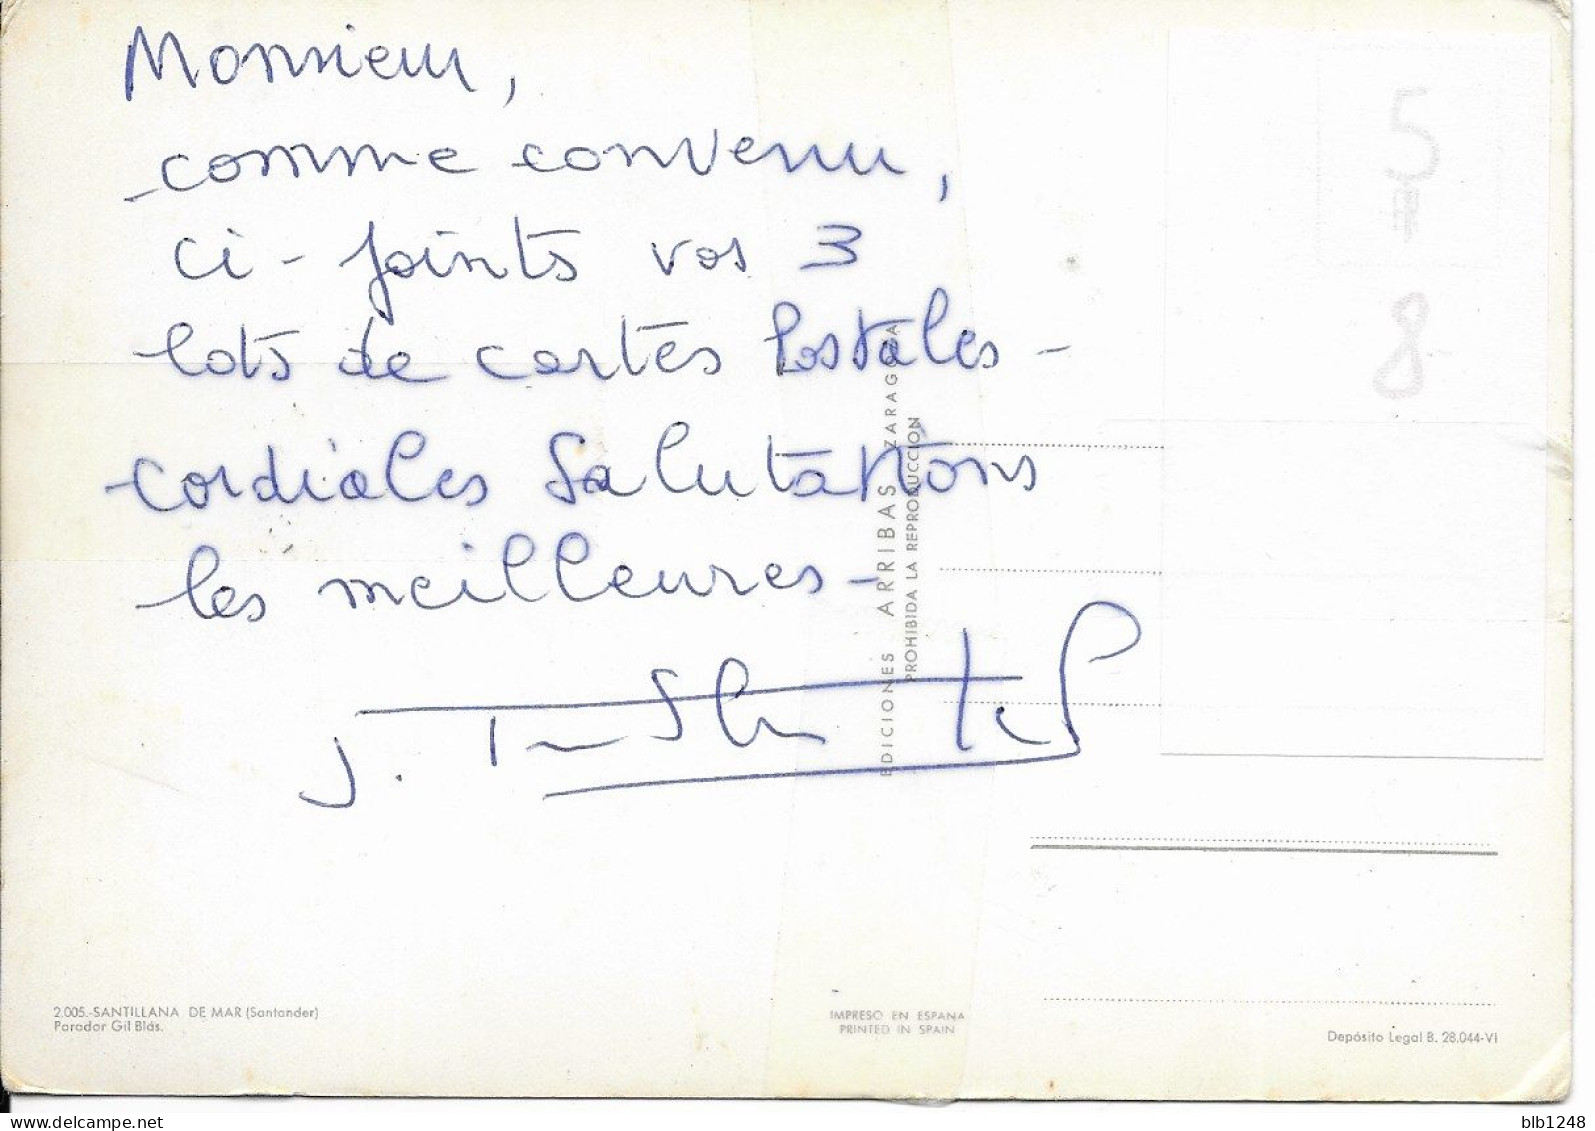 Monsieur,
comme convenu,
ci-joints vos 3
lots de cartes Postales -
cordiales Salutations
les meilleures -
J.
5
8
EDICIONES ARRIBAS ZARAGOZA
PROHIBIDA LA REPRODUCCION
2.005.-SANTILLANA DE MAR (Santander)
Parador Gil Blás.
IMPRESO EN ESPAÑA
PRINTED IN SPAIN
Depósito Legal B. 28.044-VI
blb1248